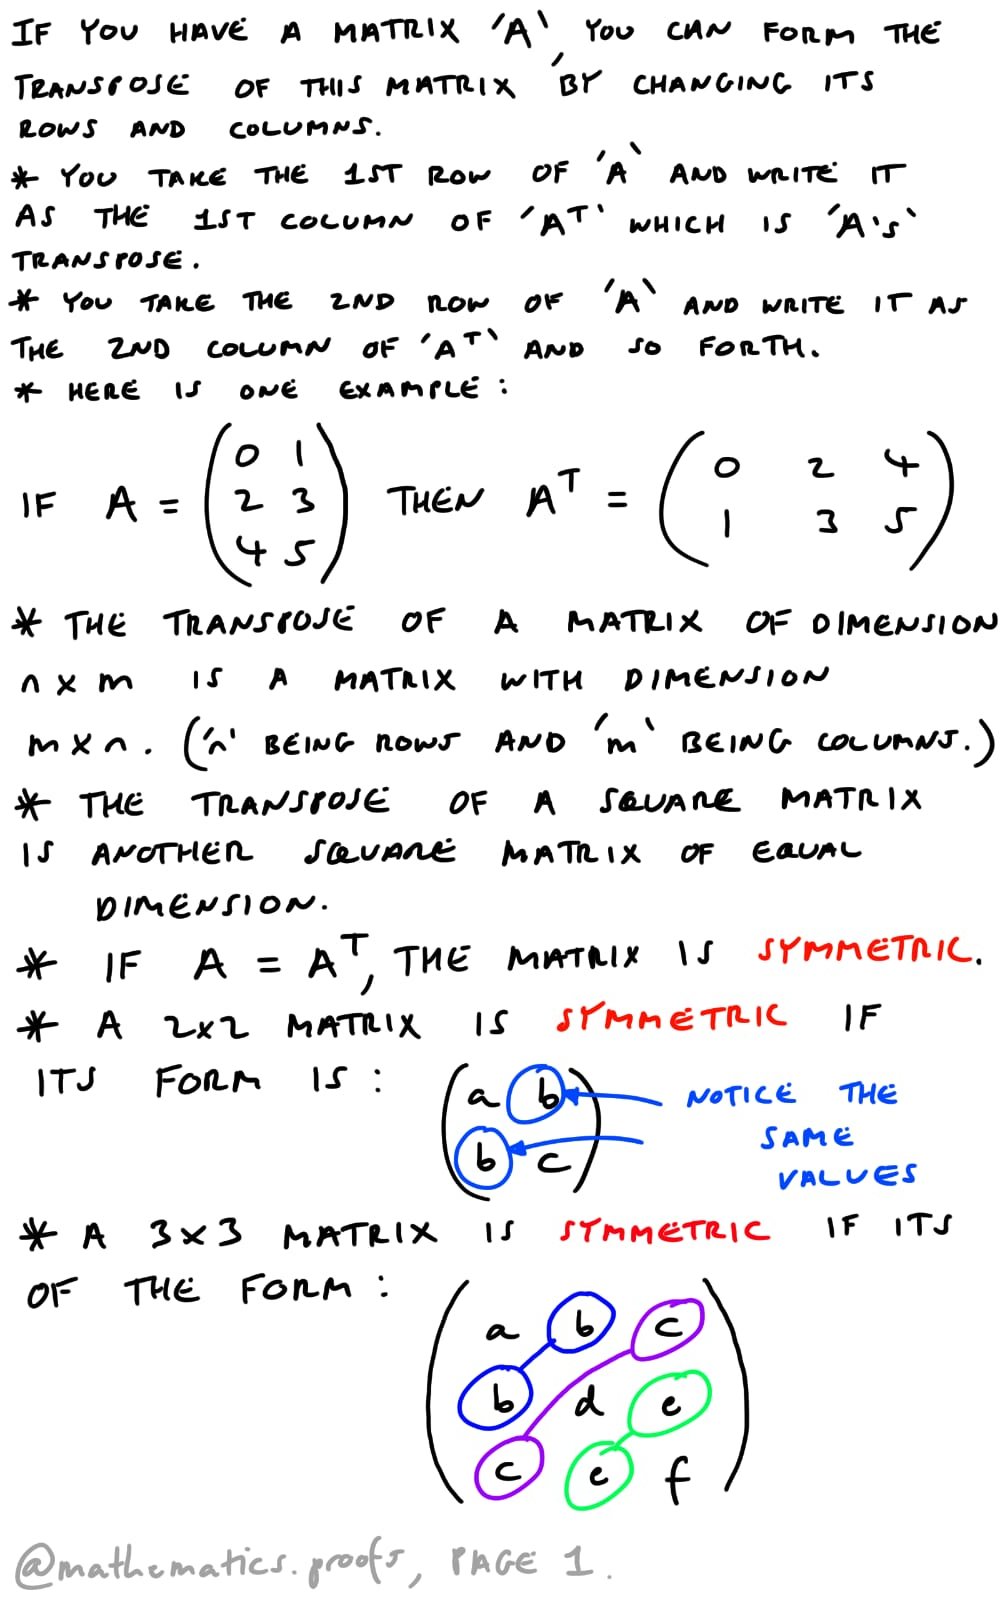 IF YOU HAVE A MATRIX 'A', YOU CAN FORM THE
TRANSPOSE OF THIS MATRIX BY CHANGING ITS
ROWS AND COLUMNS.
* YOU TAKE THE 1ST ROW OF 'A' AND WRITE IT
AS THE 1ST COLUMN OF 'Aᵀ' WHICH IS 'A's'
TRANSPOSE.
* YOU TAKE THE 2ND ROW OF 'A' AND WRITE IT AS
THE 2ND COLUMN OF 'Aᵀ' AND SO FORTH.
* HERE IS ONE EXAMPLE:
0 1
IF A = 2 3 THEN Aᵀ = 0 2 4
4 5 1 3 5
* THE TRANSPOSE OF A MATRIX OF DIMENSION
n x m IS A MATRIX WITH DIMENSION
m x n. ('n' BEING ROWS AND 'm' BEING COLUMNS.)
* THE TRANSPOSE OF A SQUARE MATRIX
IS ANOTHER SQUARE MATRIX OF EQUAL
DIMENSION.
* IF A = Aᵀ, THE MATRIX IS SYMMETRIC.
* A 2x2 MATRIX IS SYMMETRIC IF
ITS FORM IS:
a b
b c
NOTICE THE
SAME
VALUES
* A 3x3 MATRIX IS SYMMETRIC IF ITS
OF THE FORM:
a b c
b d e
c e f
@mathematics.proofs, PAGE 1.